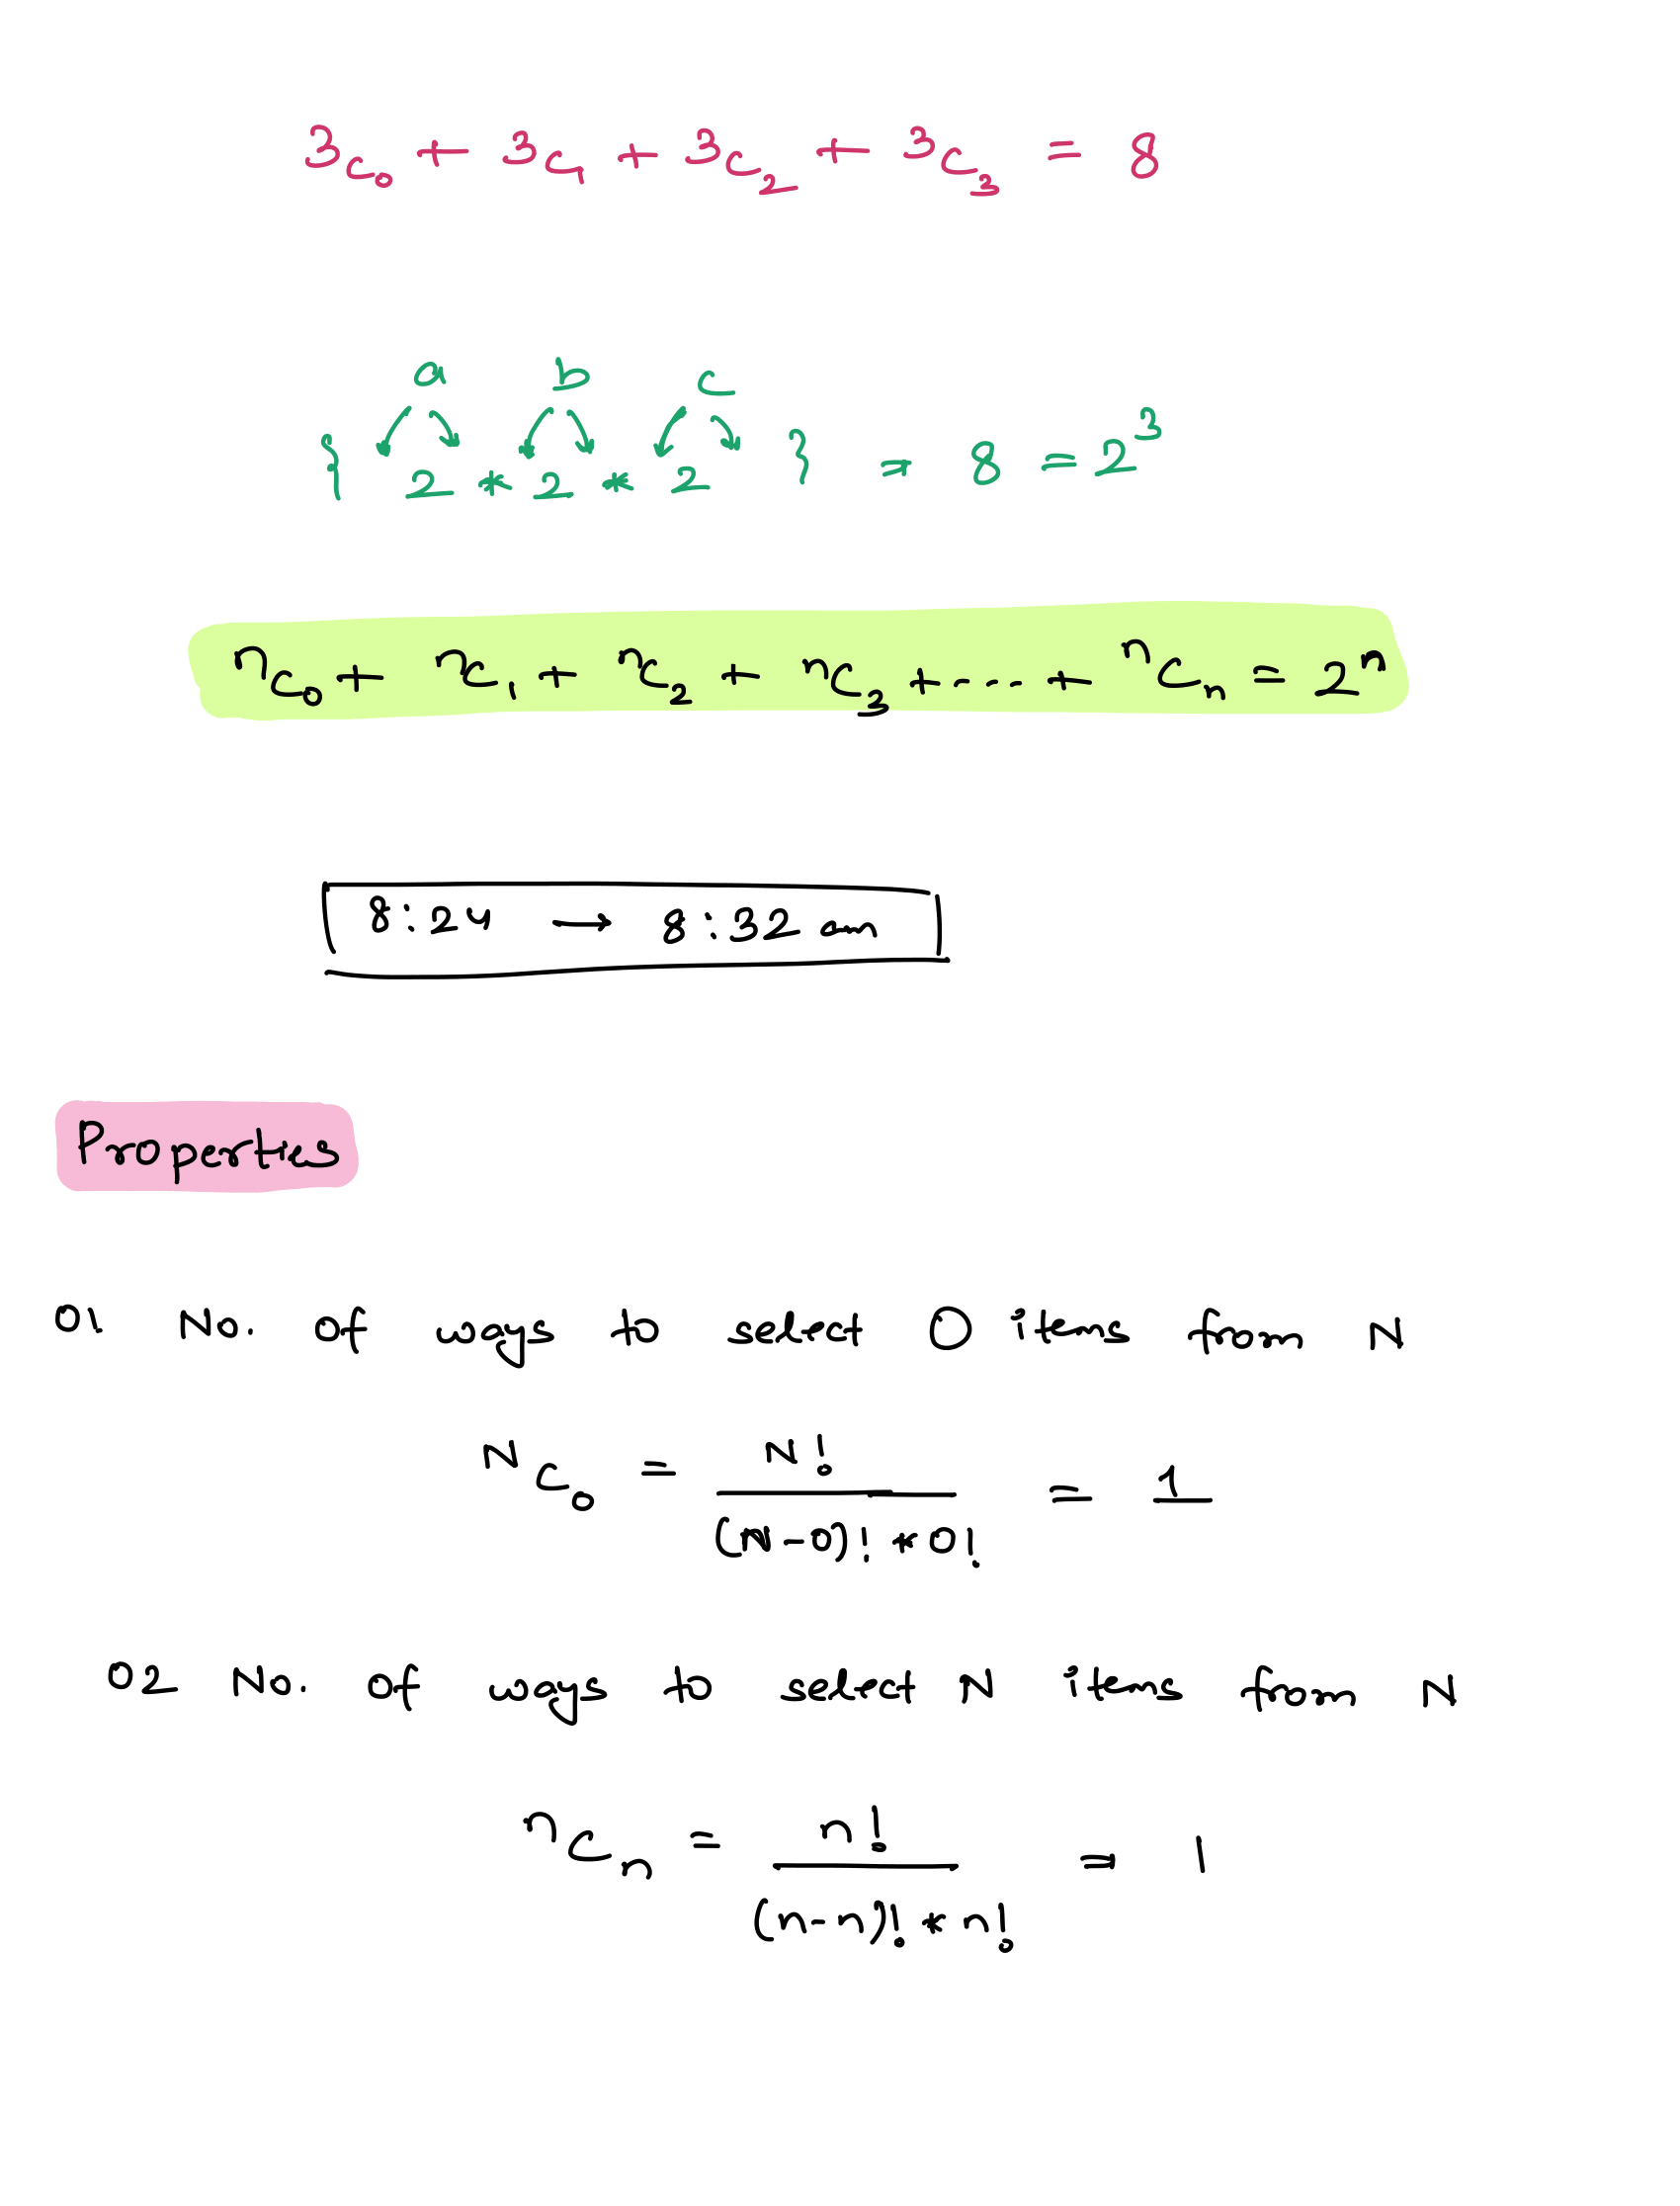 3C₀ + 3C₁ + 3C₂ + 3C₃ = 8
a b c
{ 2 * 2 * 2 } = 8 = 2³
ⁿC₀ + ⁿC₁ + ⁿC₂ + ⁿC₃ + ... + ⁿCₙ = 2ⁿ
8:24 → 8:32 am
Properties
01. No. of ways to select 0 items from N
ᴺC₀ = N! / (N-0)! * 0! = 1
02 No. of ways to select N items from N
ⁿCₙ = n! / (n-n)! * n! = 1